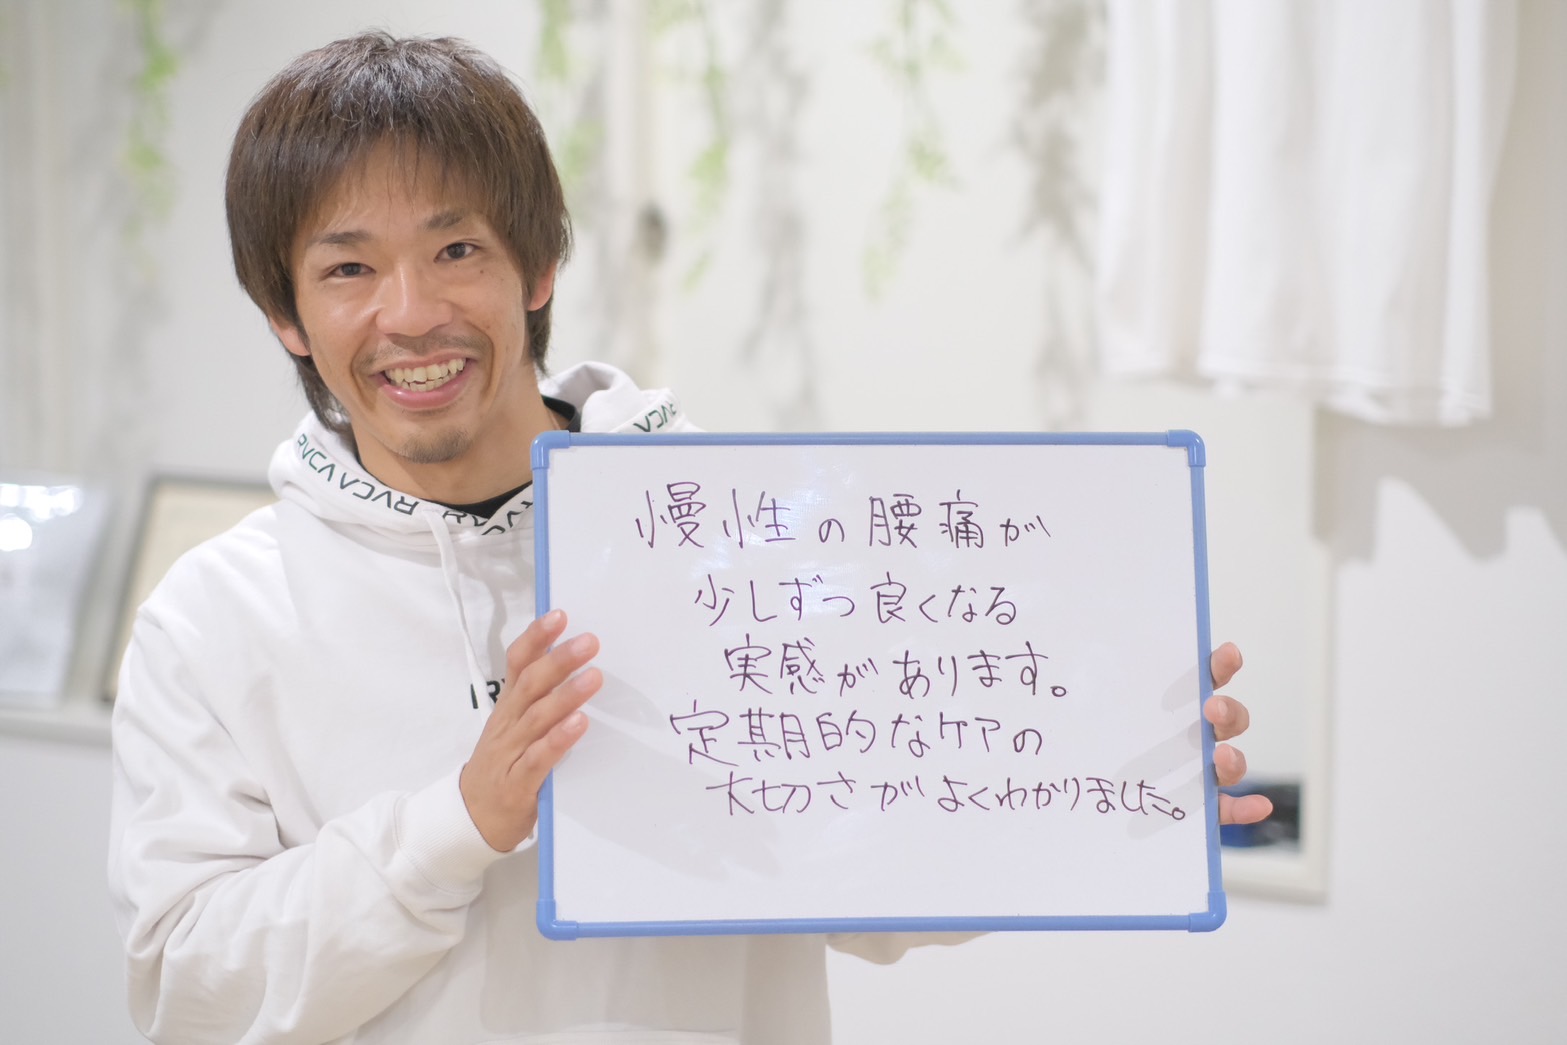 RVCA RVCA RVCA
慢性の腰痛が
少しずつ良くなる
実感があります。
定期的なケアの
大切さがよくわかりました。